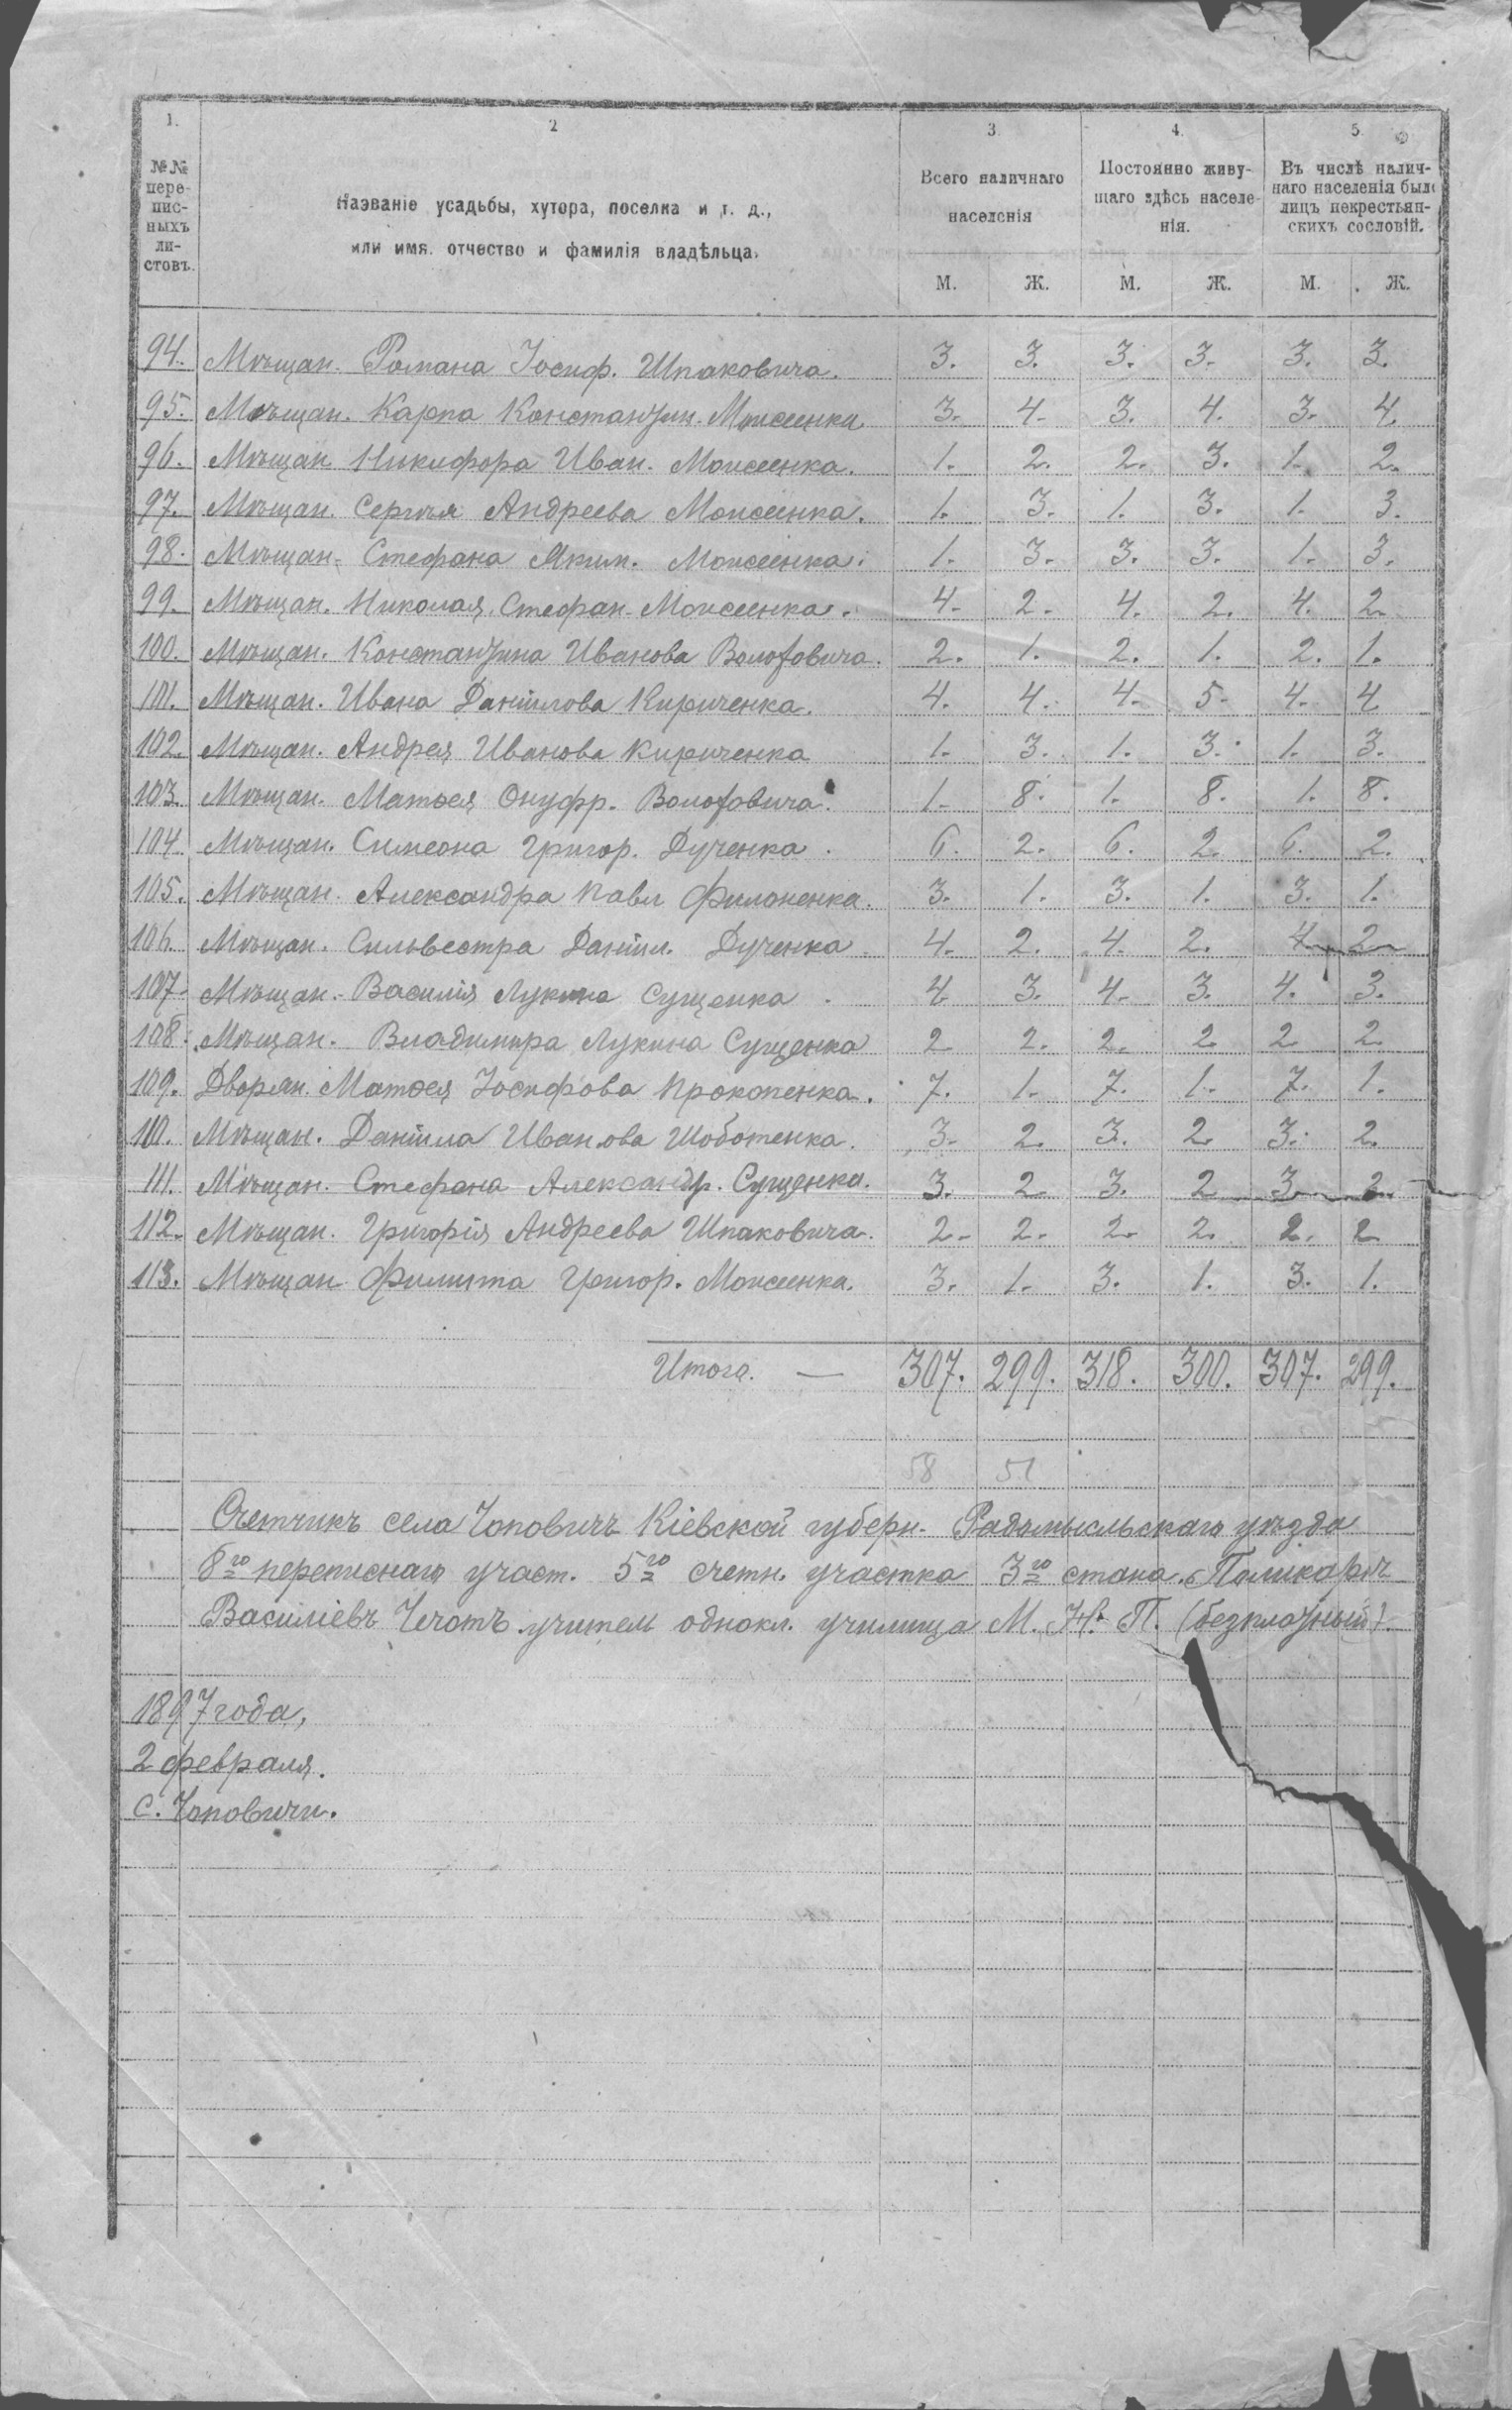 1. 2 3. 4. 5.
№№ пере-писныхъ ли-стовъ.
Названіе усадьбы, хутора, поселка и т. д.,
или имя. отчество и фамилія владѣльца.
Всего наличнаго
населенія
Постоянно живу-
щаго здѣсь населе-
нія.
Въ числѣ налич-
наго населенія было
лицъ некрестьян-
скихъ сословій.
М. Ж. М. Ж. М. Ж.
94. Мѣщан. Романа Іосиф. Шпаковича. 3. 3. 3. 3. 3. 3.
95. Мѣщан. Карпа Константин. Моисеенка 3. 4. 3. 4. 3. 4.
96. Мѣщан. Никифора Иван. Моисеенка. 1. 2. 2. 3. 1. 2.
97. Мѣщан. Сергѣя Андреева Моисеенка. 1. 3. 1. 3. 1. 3.
98. Мѣщан. Стефана Яким. Моисеенка. 1. 3. 3. 3. 1. 3.
99. Мѣщан. Николая Стефан. Моисеенка. 4. 2. 4. 2. 4. 2.
100. Мѣщан. Константина Иванова Волотовича. 2. 1. 2. 1. 2. 1.
101. Мѣщан. Ивана Даніилова Кириченка. 4. 4. 4. 5. 4. 4
102. Мѣщан. Андрея Иванова Кириченка 1. 3. 1. 3. 1. 3.
103. Мѣщан. Матѳея Онуфр. Волотовича. 1. 8. 1. 8. 1. 8.
104. Мѣщан. Симеона Григор. Дученка. 6. 2. 6. 2. 6. 2.
105. Мѣщан. Александра Павл. Филоненка. 3. 1. 3. 1. 3. 1.
106. Мѣщан. Сильвестра Даніил. Дученка 4. 2. 4. 2. 4 2
107. Мѣщан. Василія Лукина Сущенка. 4. 3. 4. 3. 4. 3.
108. Мѣщан. Владимира Лукина Сущенка 2 2. 2. 2. 2 2.
109. Дворян. Матѳея Іосифова Прокопенка. 7. 1. 7. 1. 7. 1.
110. Мѣщан. Даніила Иванова Шоботенка. 3. 2. 3. 2. 3. 2.
111. Мѣщан. Стефана Александр. Сущенка. 3. 2. 3. 2 3 2.
112. Мѣщан. Григорія Андреева Шпаковича. 2. 2. 2. 2. 2. 2
113. Мѣщан. Филиппа Григор. Моисеенка. 3. 1. 3. 1. 3. 1.
Итого. — 307. 299. 318. 300. 307. 299.
58 51
Счетчикъ села Чоповичъ Кіевской губерн. Радомысльскаго уѣзда
8го переписнаго участ. 5го счетн. участка 3го стана Поликарпъ
Василіевъ Чечотъ учитель однокл. училища М. Н. П. (безплатный).
1897 года,
2 февраля.
с. Чоповичи.